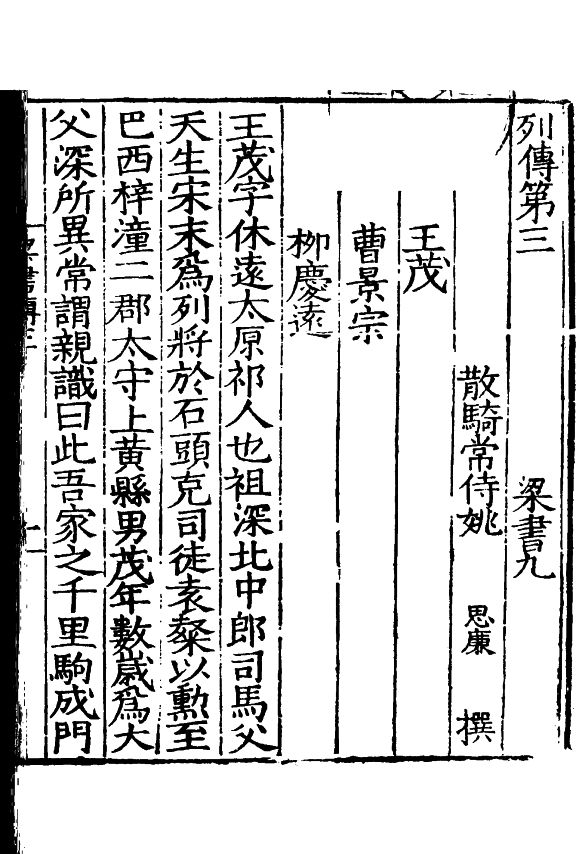 列傳第三 梁書九
散騎常侍姚 思廉 撰
王茂
曹景宗
柳慶遠
王茂字休遠太原祁人也祖深北中郎司馬父
天生宋末爲列將於石頭克司徒袁粲以勲至
巴西梓潼二郡太守上黃縣男茂年數歲爲大
父深所異常謂親識曰此吾家之千里駒成門